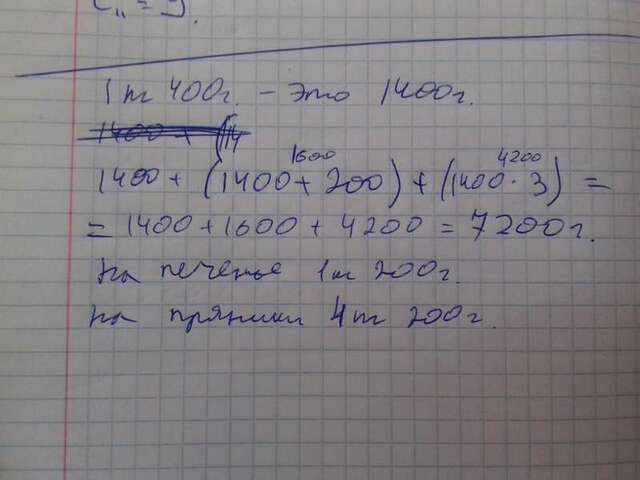 1т 400г. – это 1400г.
1400 + (1400 + 200) + (1400 · 3) =
1600 4200
= 1400 + 1600 + 4200 = 7200г.
на печенье 1т 200г.
на пряники 4т 200г.